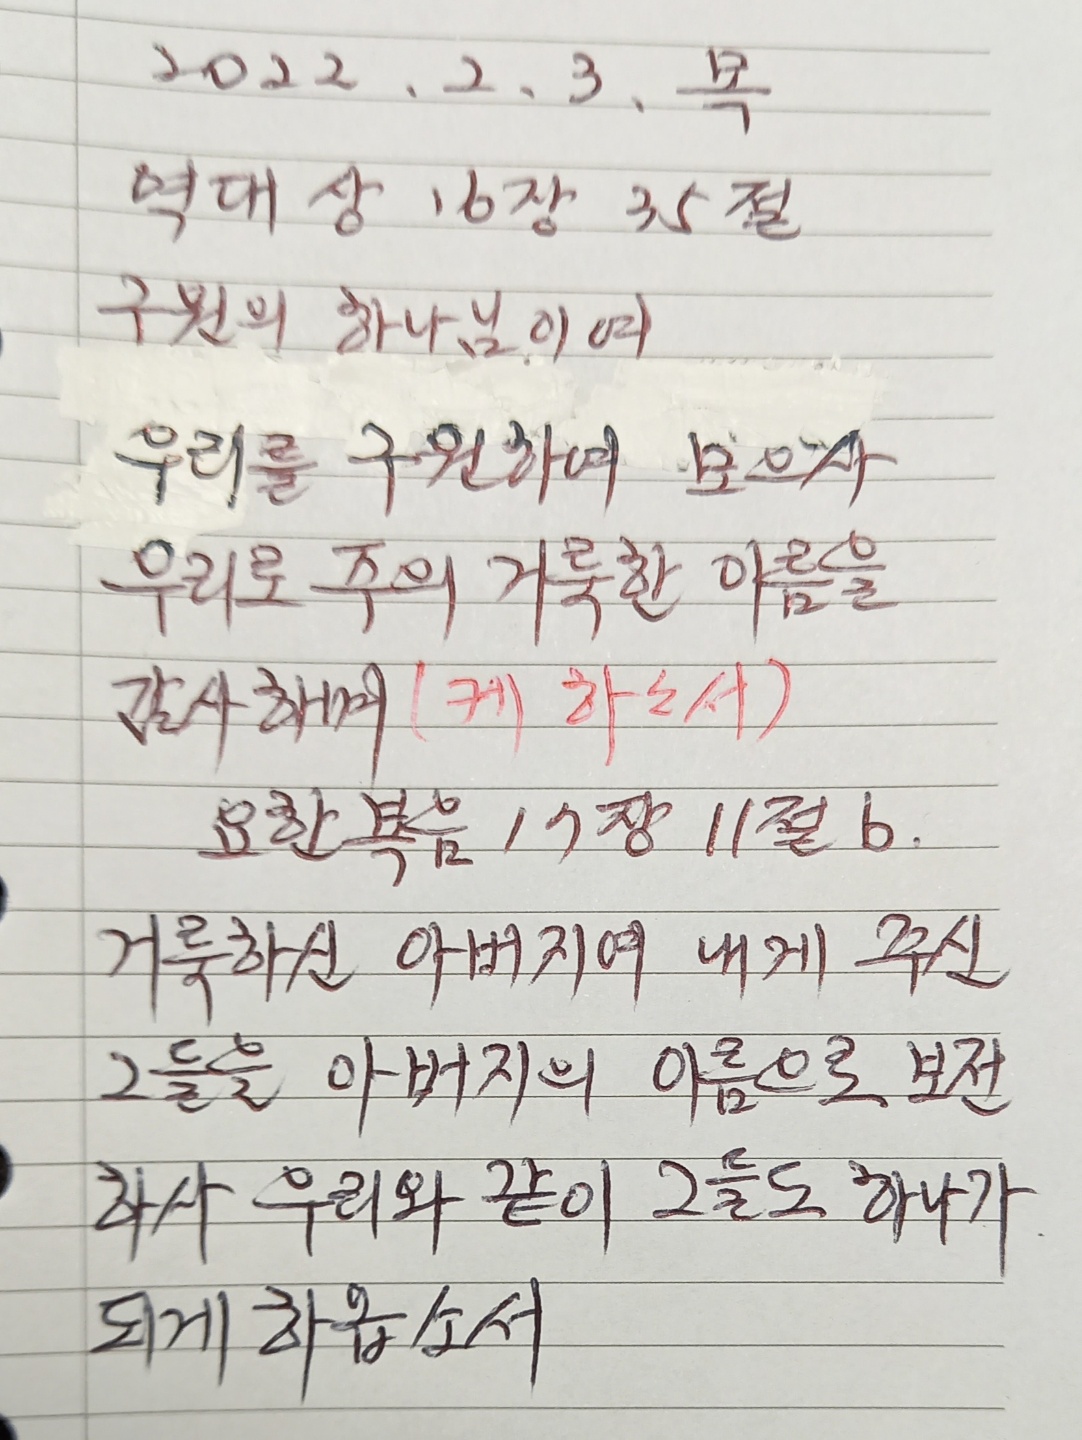 2022. 2. 3. 목
역대상 16장 35절
구원의 하나님이여
우리를 구원하여 모으사
우리로 주의 거룩한 이름을
감사하며 (케 하소서)
요한복음 17장 11절 b.
거룩하신 아버지여 내게 주신
그들을 아버지의 이름으로 보전
하사 우리와 같이 그들도 하나가
되게 하옵소서